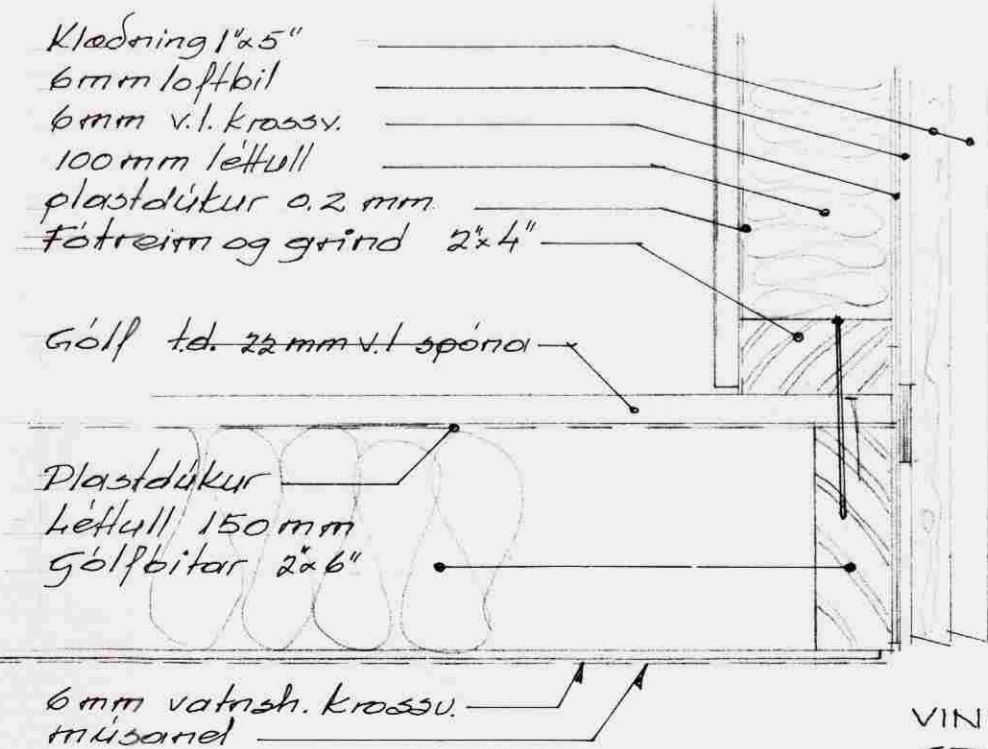 Klæðning 1"x5"
6mm loftbil
6mm v.l. krossv.
100 mm léttull
plastdúkur 0.2 mm
Fótreim og grind 2"x4"
Gólf t.d. 22 mm v.l spóna
Plastdúkur
Léttull 150 mm
Gólfbitar 2"x6"
6 mm vatnsh. krossv.
músanet
VIN